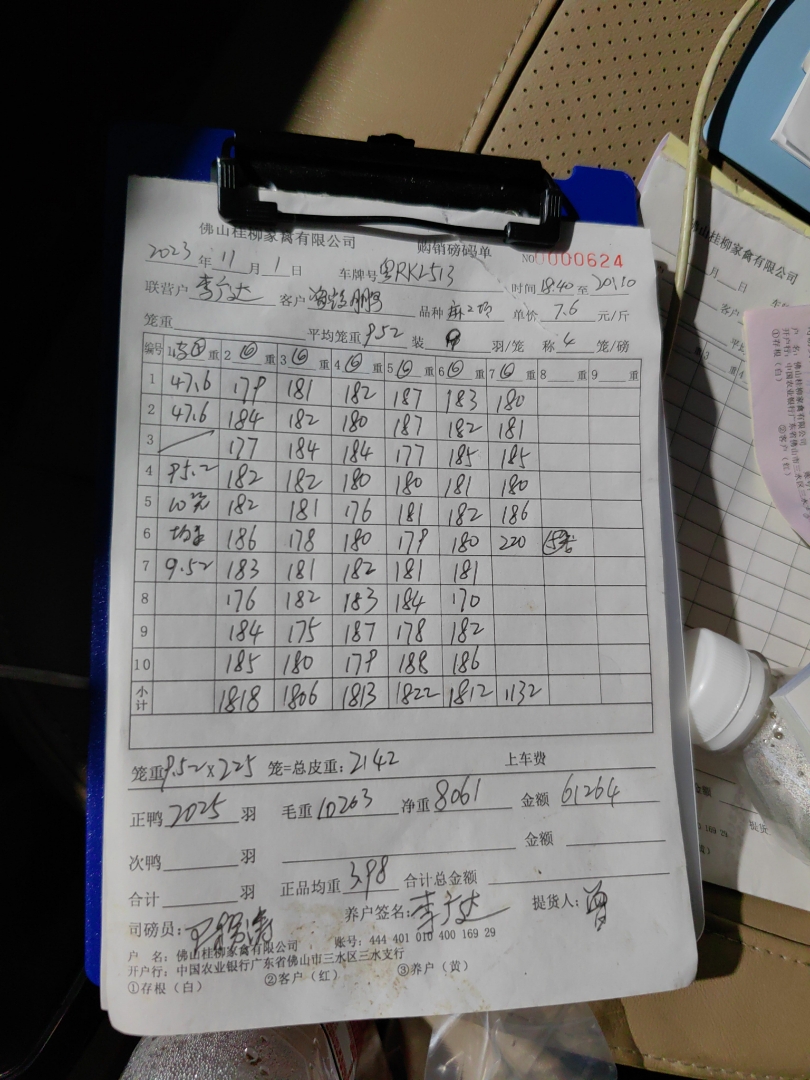 佛山桂柳家禽有限公司 购销磅码单
2023 年 11 月 1 日 车牌号 粤RKL513 NO 0000624
时间 18:40 至 20:10
联营户 李广达 客户 品种 单价 7.6 元/斤
笼重 平均笼重 9.52 装 羽/笼 称 4 笼/磅
编号 1 重 2 ⑥ 重 3 ⑥ 重 4 ⑥ 重 5 ⑥ 重 6 ⑥ 重 7 ⑥ 重 8 重 9 重
1 47.6 179 181 182 187 183 180
2 47.6 184 182 180 187 182 181
3 177 184 184 177 185 185
4 95.2 182 182 180 180 181 180
5 10 182 181 176 181 182 186
6 均重 186 178 180 179 180 220
7 9.52 183 181 182 181 181
8 176 182 183 184 170
9 184 175 187 178 182
10 185 180 179 188 186
小计 1818 1806 1813 1822 1812 1132
笼重 9.52×225 笼=总皮重: 2142 上车费
正鸭 2025 羽 毛重 10203 净重 8061 金额 61264
次鸭 羽 金额
合计 羽 正品均重 3.98 合计总金额
司磅员: 养户签名: 李广达 提货人: 曾
户 名: 佛山桂柳家禽有限公司 账号: 444 401 010 400 169 29
开户行: 中国农业银行广东省佛山市三水区三水支行
①存根（白） ②客户（红） ③养户（黄）